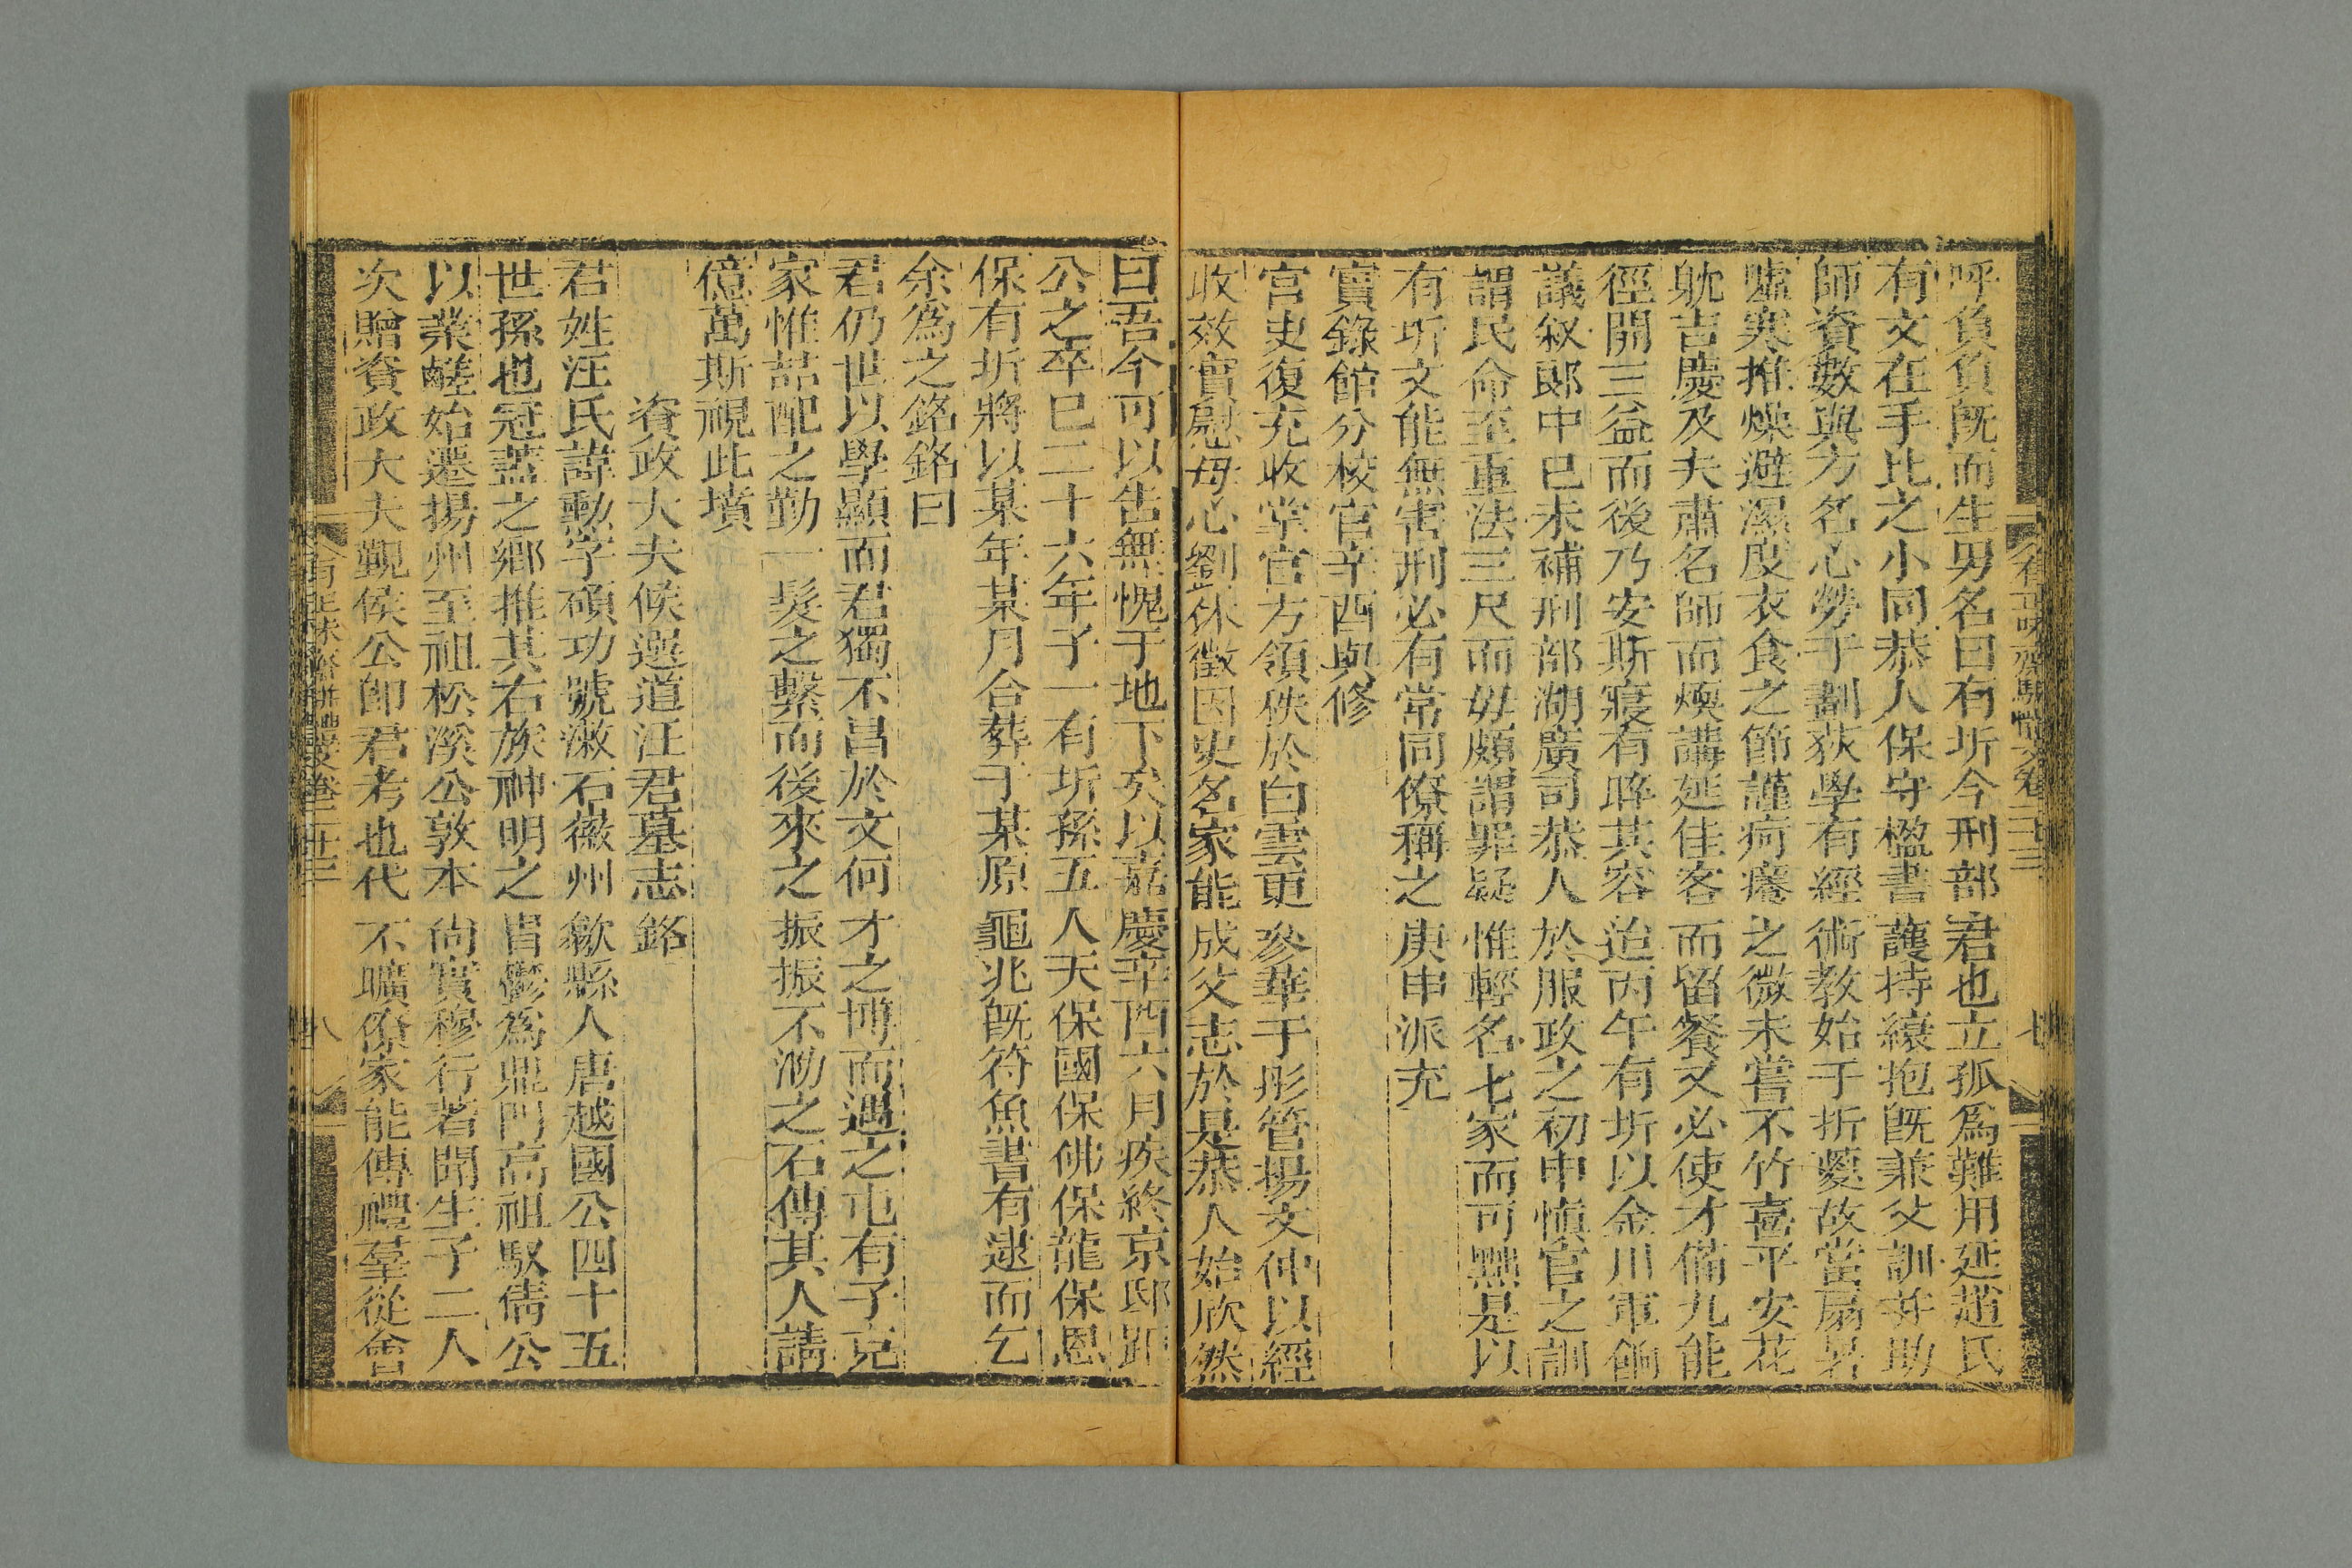 呼負負既而生男名曰有圻今刑部君也立孤爲難用延趙氏
有文在手比之小同恭人保守楹書護持繈抱既兼父訓并助
師資數與方名心勞于劃荻學有經術教始于折葼故當扇暑
爐寒推燥避濕度衣食之節謹疴癢之微未嘗不竹喜平安花
躭吉慶及夫肅名師而煥講延佳客而留餐又必使才備九能
徑開三益而後乃安斯寢有睟其容迨丙午有圻以金川軍餉
議叙郎中己未補刑部湖廣司恭人於服政之初申愼官之訓
謂民命至重法三尺而毋頗謂罪疑惟輕名七家而可興是以
有圻文能無害刑必有常同僚稱之庚申派充
實錄館分校官辛酉與修
宮史復充收掌官方領秩於白雲更參華于彤管揚文仲以經
收效實慰母心劉休徵因史名家能成父志於是恭人始欣然
曰吾今可以告無愧于地下矣以嘉慶辛酉六月疾終京邸距
公之卒巳二十六年子一有圻孫五人天保國保佛保龍保恩
保有圻將以某年某月合葬于某原龜兆既符魚書有逮而乞
余爲之銘銘曰
君仍世以學顯而君獨不昌於文何才之博而遇之屯有子克
家惟喆配之勤一髮之繫而後來之振振不泐之石傳其人請
億萬斯視此墳
資政大夫候選道汪君墓志銘
君姓汪氏諱勳字碩功號漱石徽州歙縣人唐越國公四十五
世孫也冠蓋之鄉推其右族神明之胄鬱爲鼎門高祖馭倩公
以業鹺始遷揚州至祖松溪公敦本尙實穆行著聞生子二人
次贈資政大夫覲侯公卽君考也代不曠僚家能傳禮羣從會